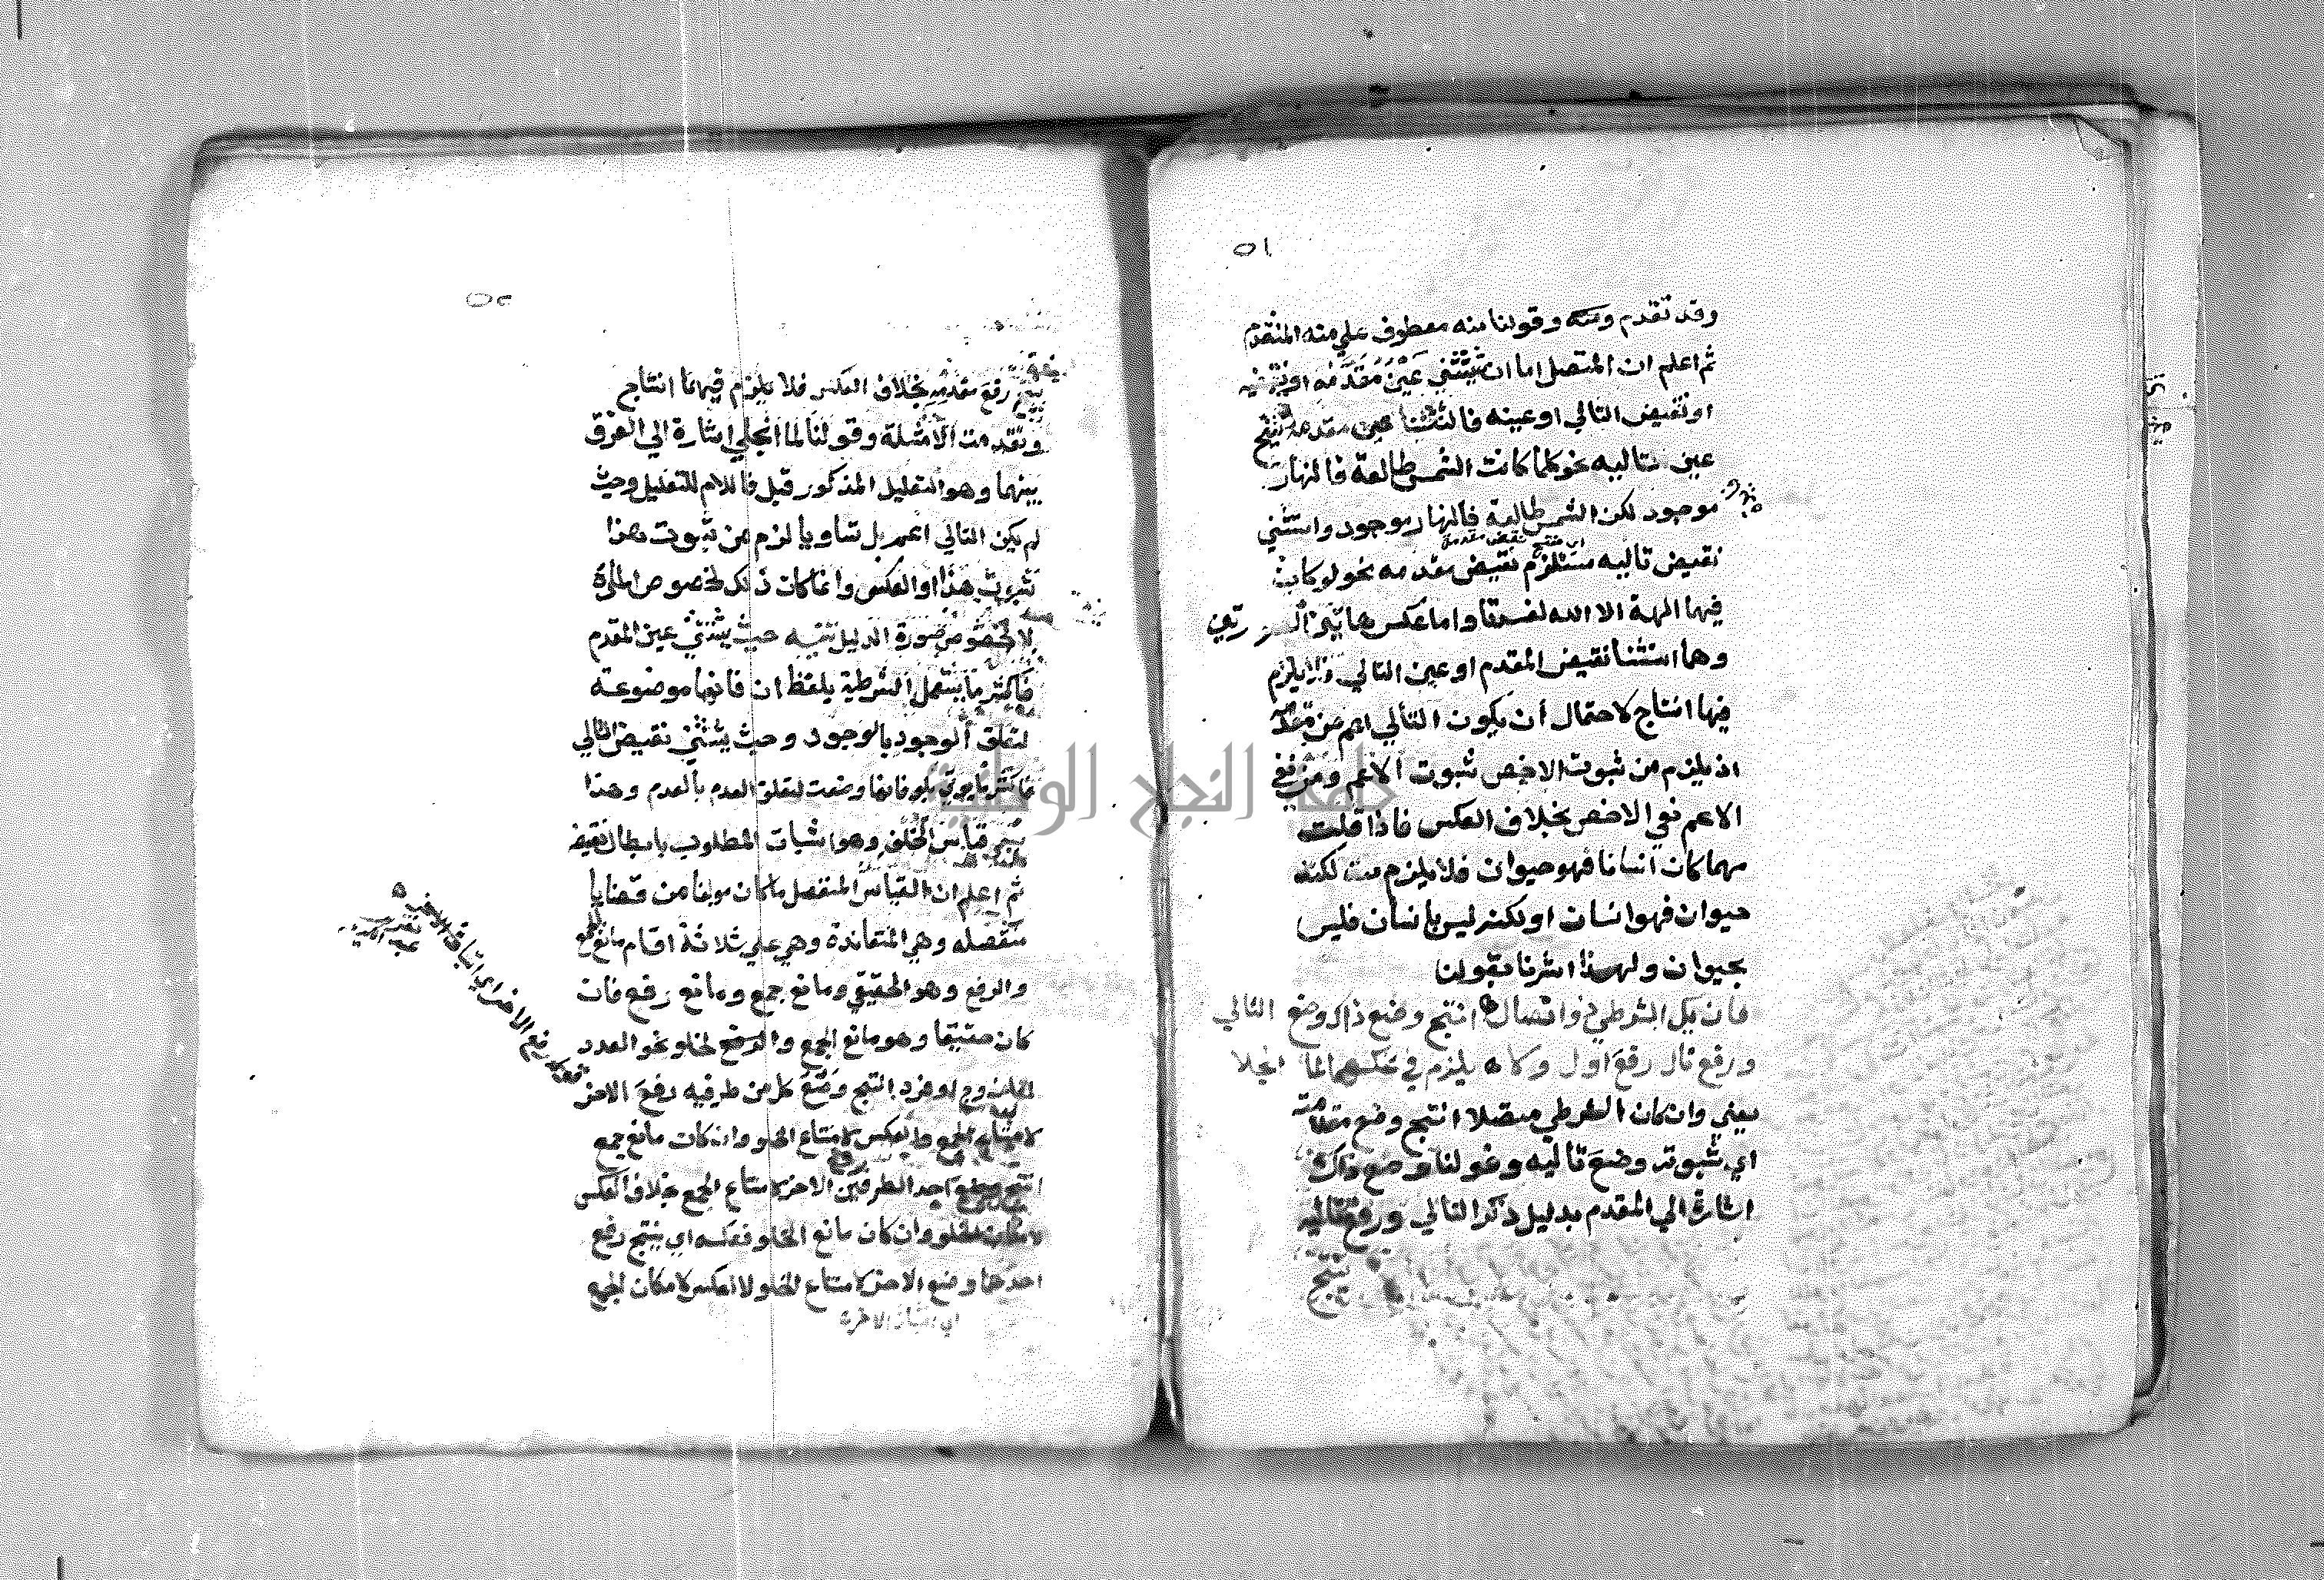 ٥١
وقد تقدم ومنه وقولنا منه معطوف علي منه المتقدم
ثم اعلم ان المتصل اما ان يستثني عين مقدمه او نقيضه
او نقيض التالي او عينه فاستثنا عين مقدمه ينتج
عين تاليه نحو كلما كانت الشمس طالعة فالنهار
موجود لكن الشمس طالعة فالنهار موجود واستثني
اي منتج نقيض مقدمه
نقيض تاليه مستلزم نقيض مقدمه نحو لو كان
فيهما الهة الا الله لفسدتا واما عكس هاتين الصورتين
وهما استثنا نقيض المقدم او عين التالي فلا يلزم
فيها انتاج لاحتمال أن يكون التالي اعم من مقدمه
اذ يلزم من ثبوت الاخص ثبوت الاعم ومن نفي
الاعم نفي الاخص بخلاف العكس فاذا قلت
مهما كان انسانا فهو حيوان فلا يلزم منه لكنه
حيوان فهو انسان او لكنه ليس بانسان فليس
بحيوان ولهذا اشرنا بقولنا
فان يك الشرطي ذو اتصال انتج وضع ذاك وضع التالي
ورفع تال رفع اول ولا يلزم في عكسهما لما انجلا
يعني وان كان الشرطي متصلا انتج وضع مقدمه
اي ثبوته وضع تاليه وقولنا وضع ذاك
اشارة الي المقدم بدليل ذكر التالي ورفع تاليه
ينتج
٥٢
ينتج رفع مقدمه بخلاف العكس فلا يلزم فيهما انتاج
وتقدمت الامثلة وقولنا لما انجلي اشارة الي الفرق
بينهما وهو التعليل المذكور قبل فاللام للتعليل وحيث
لم يكن التالي اعم بل تساويا لزم من ثبوت هذا
ثبوت هذا او العكس وانما كان ذلك لخصوص المادة
لا لخصوص صورة الدليل تنبيه حيث يستثني عين المقدم
فاكثر ما يستعمل الشرطية بلفظ ان فانها موضوعة
لتعلق الوجود بالوجود وحيث يستثني نقيض التالي
فاكثر ما يوتي بلو فانها وضعت لتعلق العدم بالعدم وهذا
يسمي قياس الخلف وهو اثبات المطلوب بابطال نقيضه
ثم اعلم ان القياس المنفصل ما كان مولفا من قضايا
منفصله وهي المتعاندة وهي علي ثلاثة اقسام مانع الجمع
والرفع وهو الحقيقي ومانع جمع ومانع رفع فان
كان حقيقيا وهو مانع الجمع والرفع الخلو نحو العدد
اما زوج او فرد انتج وضع كل من طرفيه رفع الاخر
لامتناع الجمع والعكس لامتناع الخلو وان كان مانع جمع
انتج وضع احد الطرفين الاخر لامتناع الجمع بخلاف العكس
لامكان الخلو وان كان مانع الخلو فعكسه اي ينتج رفع
احدهما وضع الاخر لامتناع الخلو لا العكس لامكان الجمع
اي اثبات الاخر
رفع الاخر اي اثباته الاخر
جامعة النجاح الوطنية